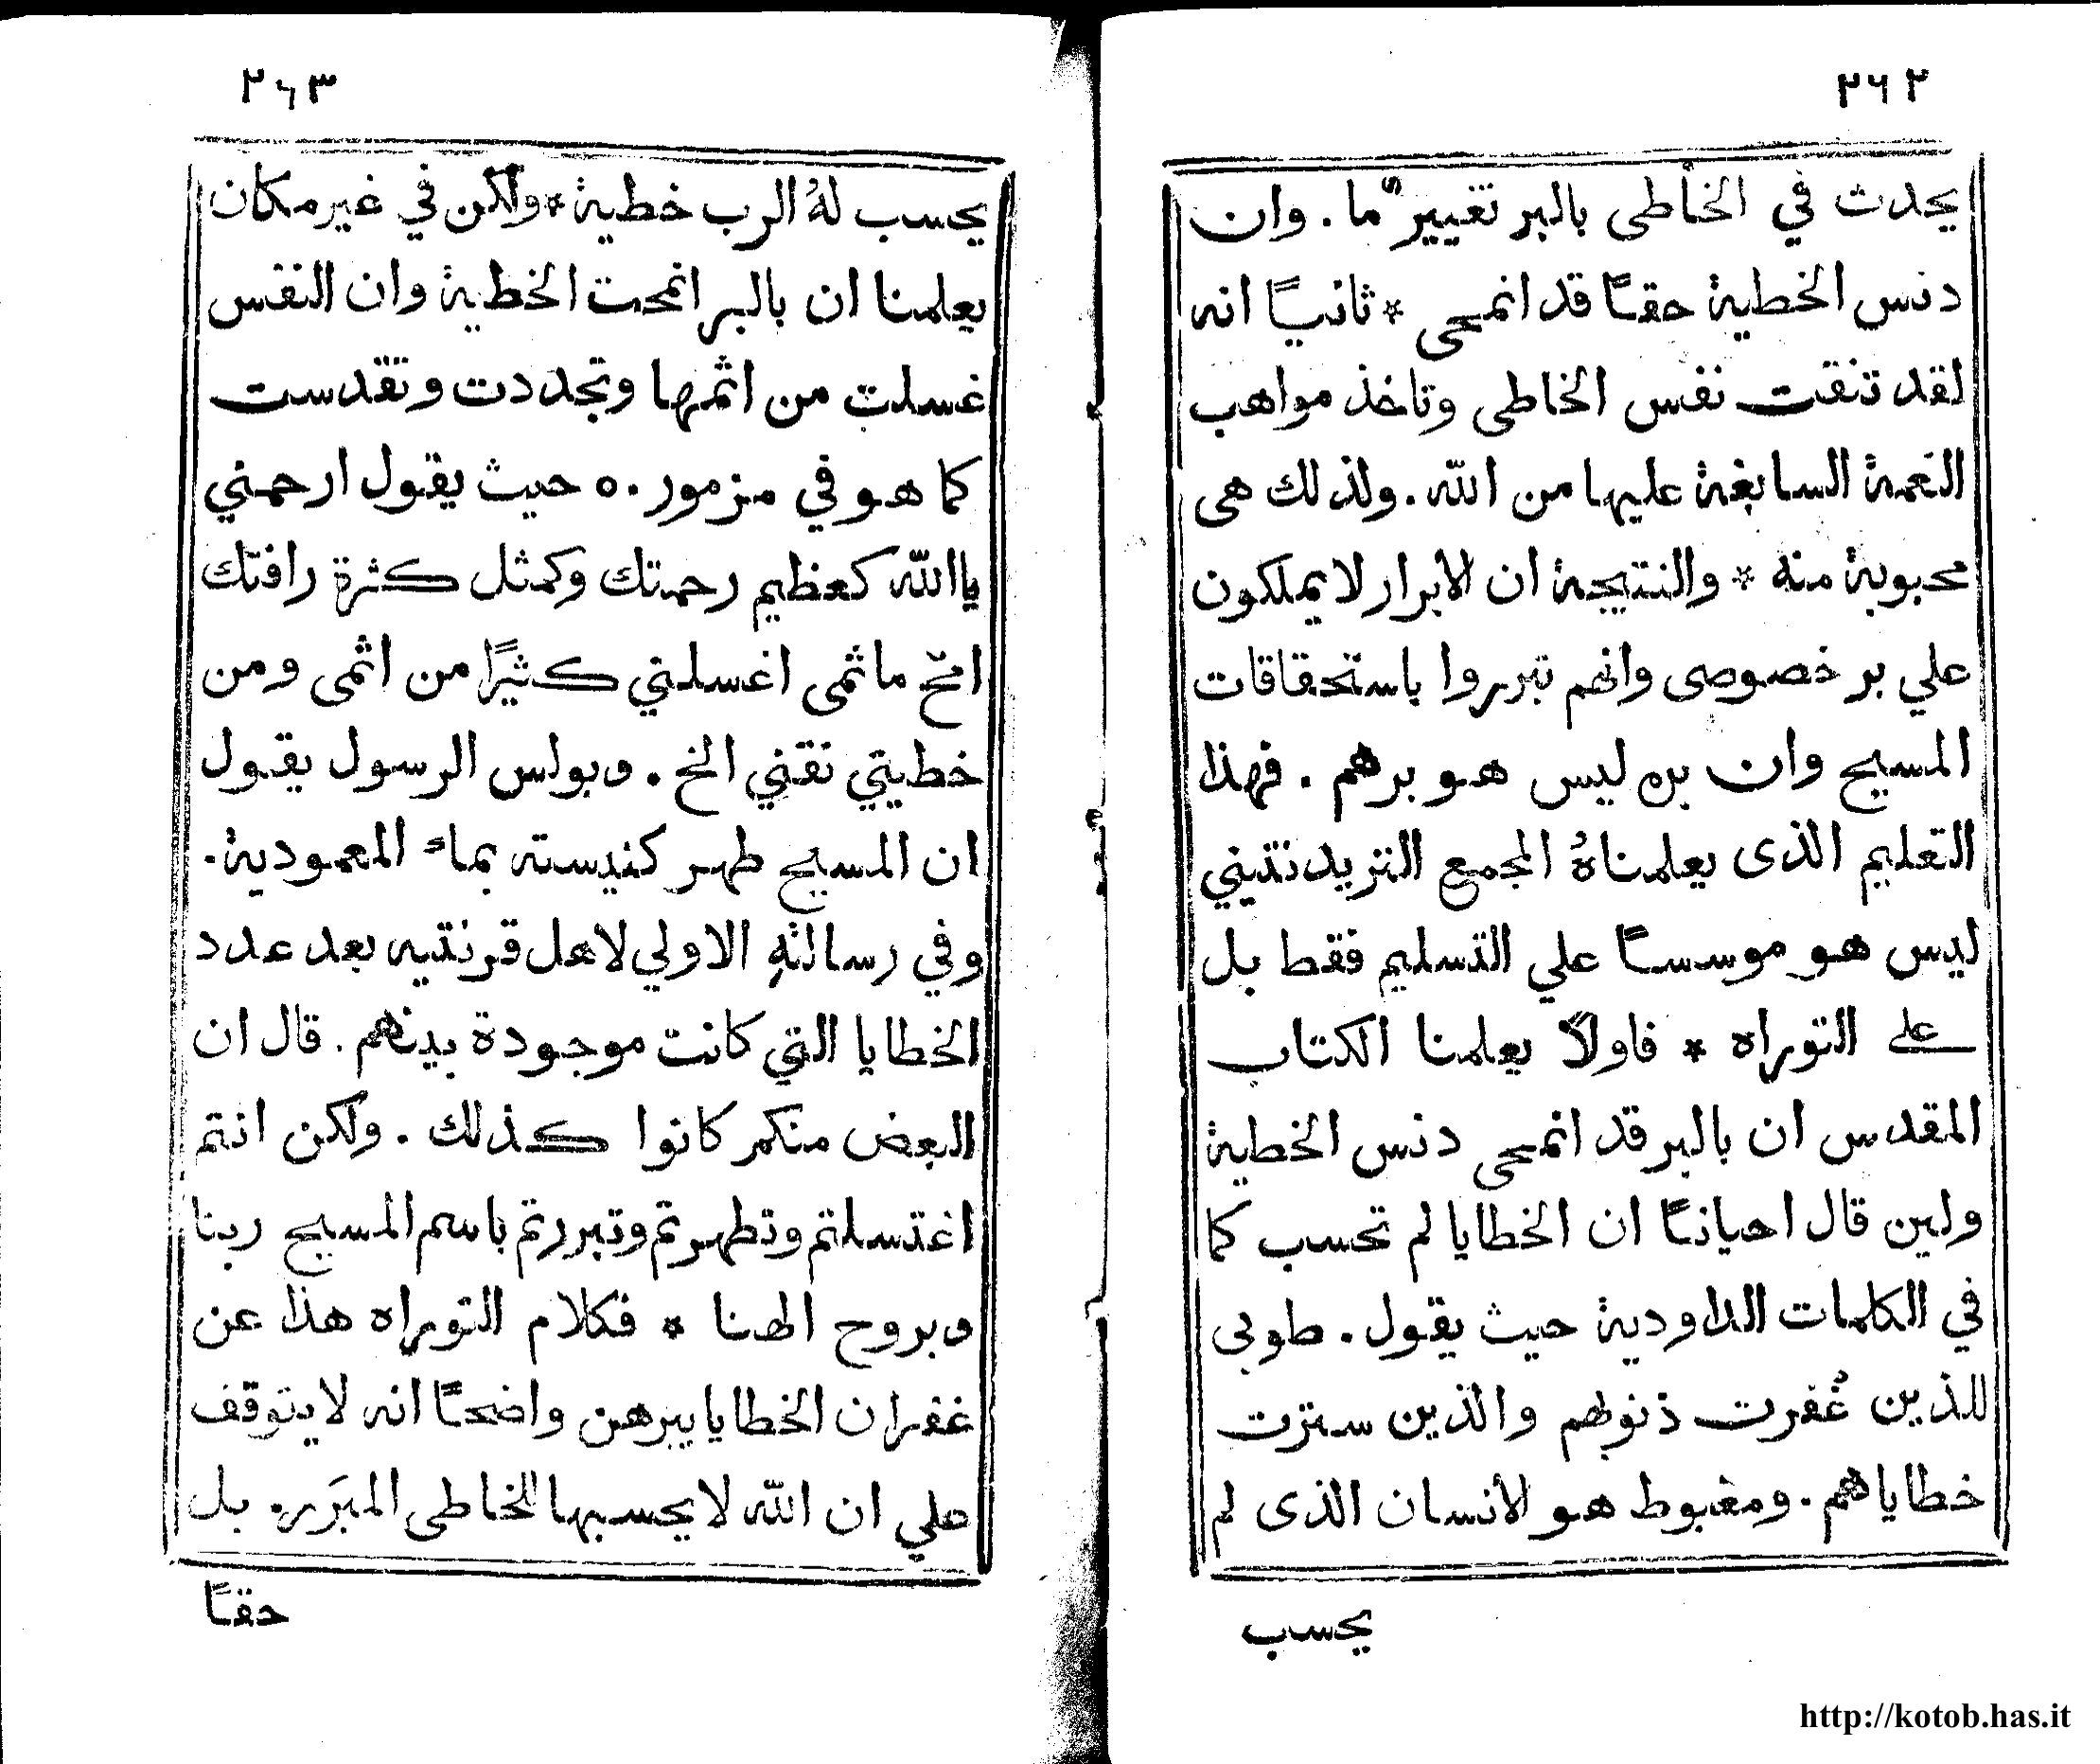 ٢٦٢
يحدث في الخاطى بالبر تغييرٌ ما. وان
دنس الخطية حقًا قد انمحى * ثانيًا انه
لقد تنقت نفس الخاطى وتاخذ مواهب
النعمة السابغة عليها من الله. ولذلك هى
محبوبة منه * والنتيجة ان الابرار لا يملكون
علي بر خصوصى وانهم تبرروا باستحقاقات
المسيح وان بره ليس هو برهم. فهذا
التعليم الذى يعلمناهُ المجمع التريدنتيني
ليس هو موسسًا علي التسليم فقط بل
على التوراه * فاولًا يعلمنا الكتاب
المقدس ان بالبر قد انمحى دنس الخطية
ولين قال احيانًا ان الخطايا لم تحسب كما
في الكلمات الداودية حيث يقول. طوبى
للذين غُفرت ذنوبهم والذين سترت
خطاياهم. ومغبوط هو الانسان الذى لم
يحسب
٢٦٣
يحسب لهُ الرب خطية * ولكن في غير مكان
يعلمنا ان بالبر انمحت الخطية وان النفس
غسلت من اثمها وتجددت وتقدست
كما هو في مزمور ٥٠ حيث يقول ارحمني
يا الله كعظيم رحمتك وكمثل كثرة رافتك
امح ماثمى اغسلني كثيرًا من اثمى ومن
خطيتي نقني الخ. وبولس الرسول يقول
ان المسيح طهر كنيسته بماء المعمودية.
وفي رسالتهِ الاولي لاهل قرنتيه بعد عدد
الخطايا التي كانت موجودة بينهم. قال ان
البعض منكم كانوا كذلك. ولكن انتم
اغتسلتم وتطهرتم وتبررتم باسم المسيح ربنا
وبروح الهنا * فكلام التوراه هذا عن
غفران الخطايا يبرهن واضحًا انه لا يتوقف
علي ان الله لا يحسبها للخاطى المبَرر. بل
حقًا
http://kotob.has.it